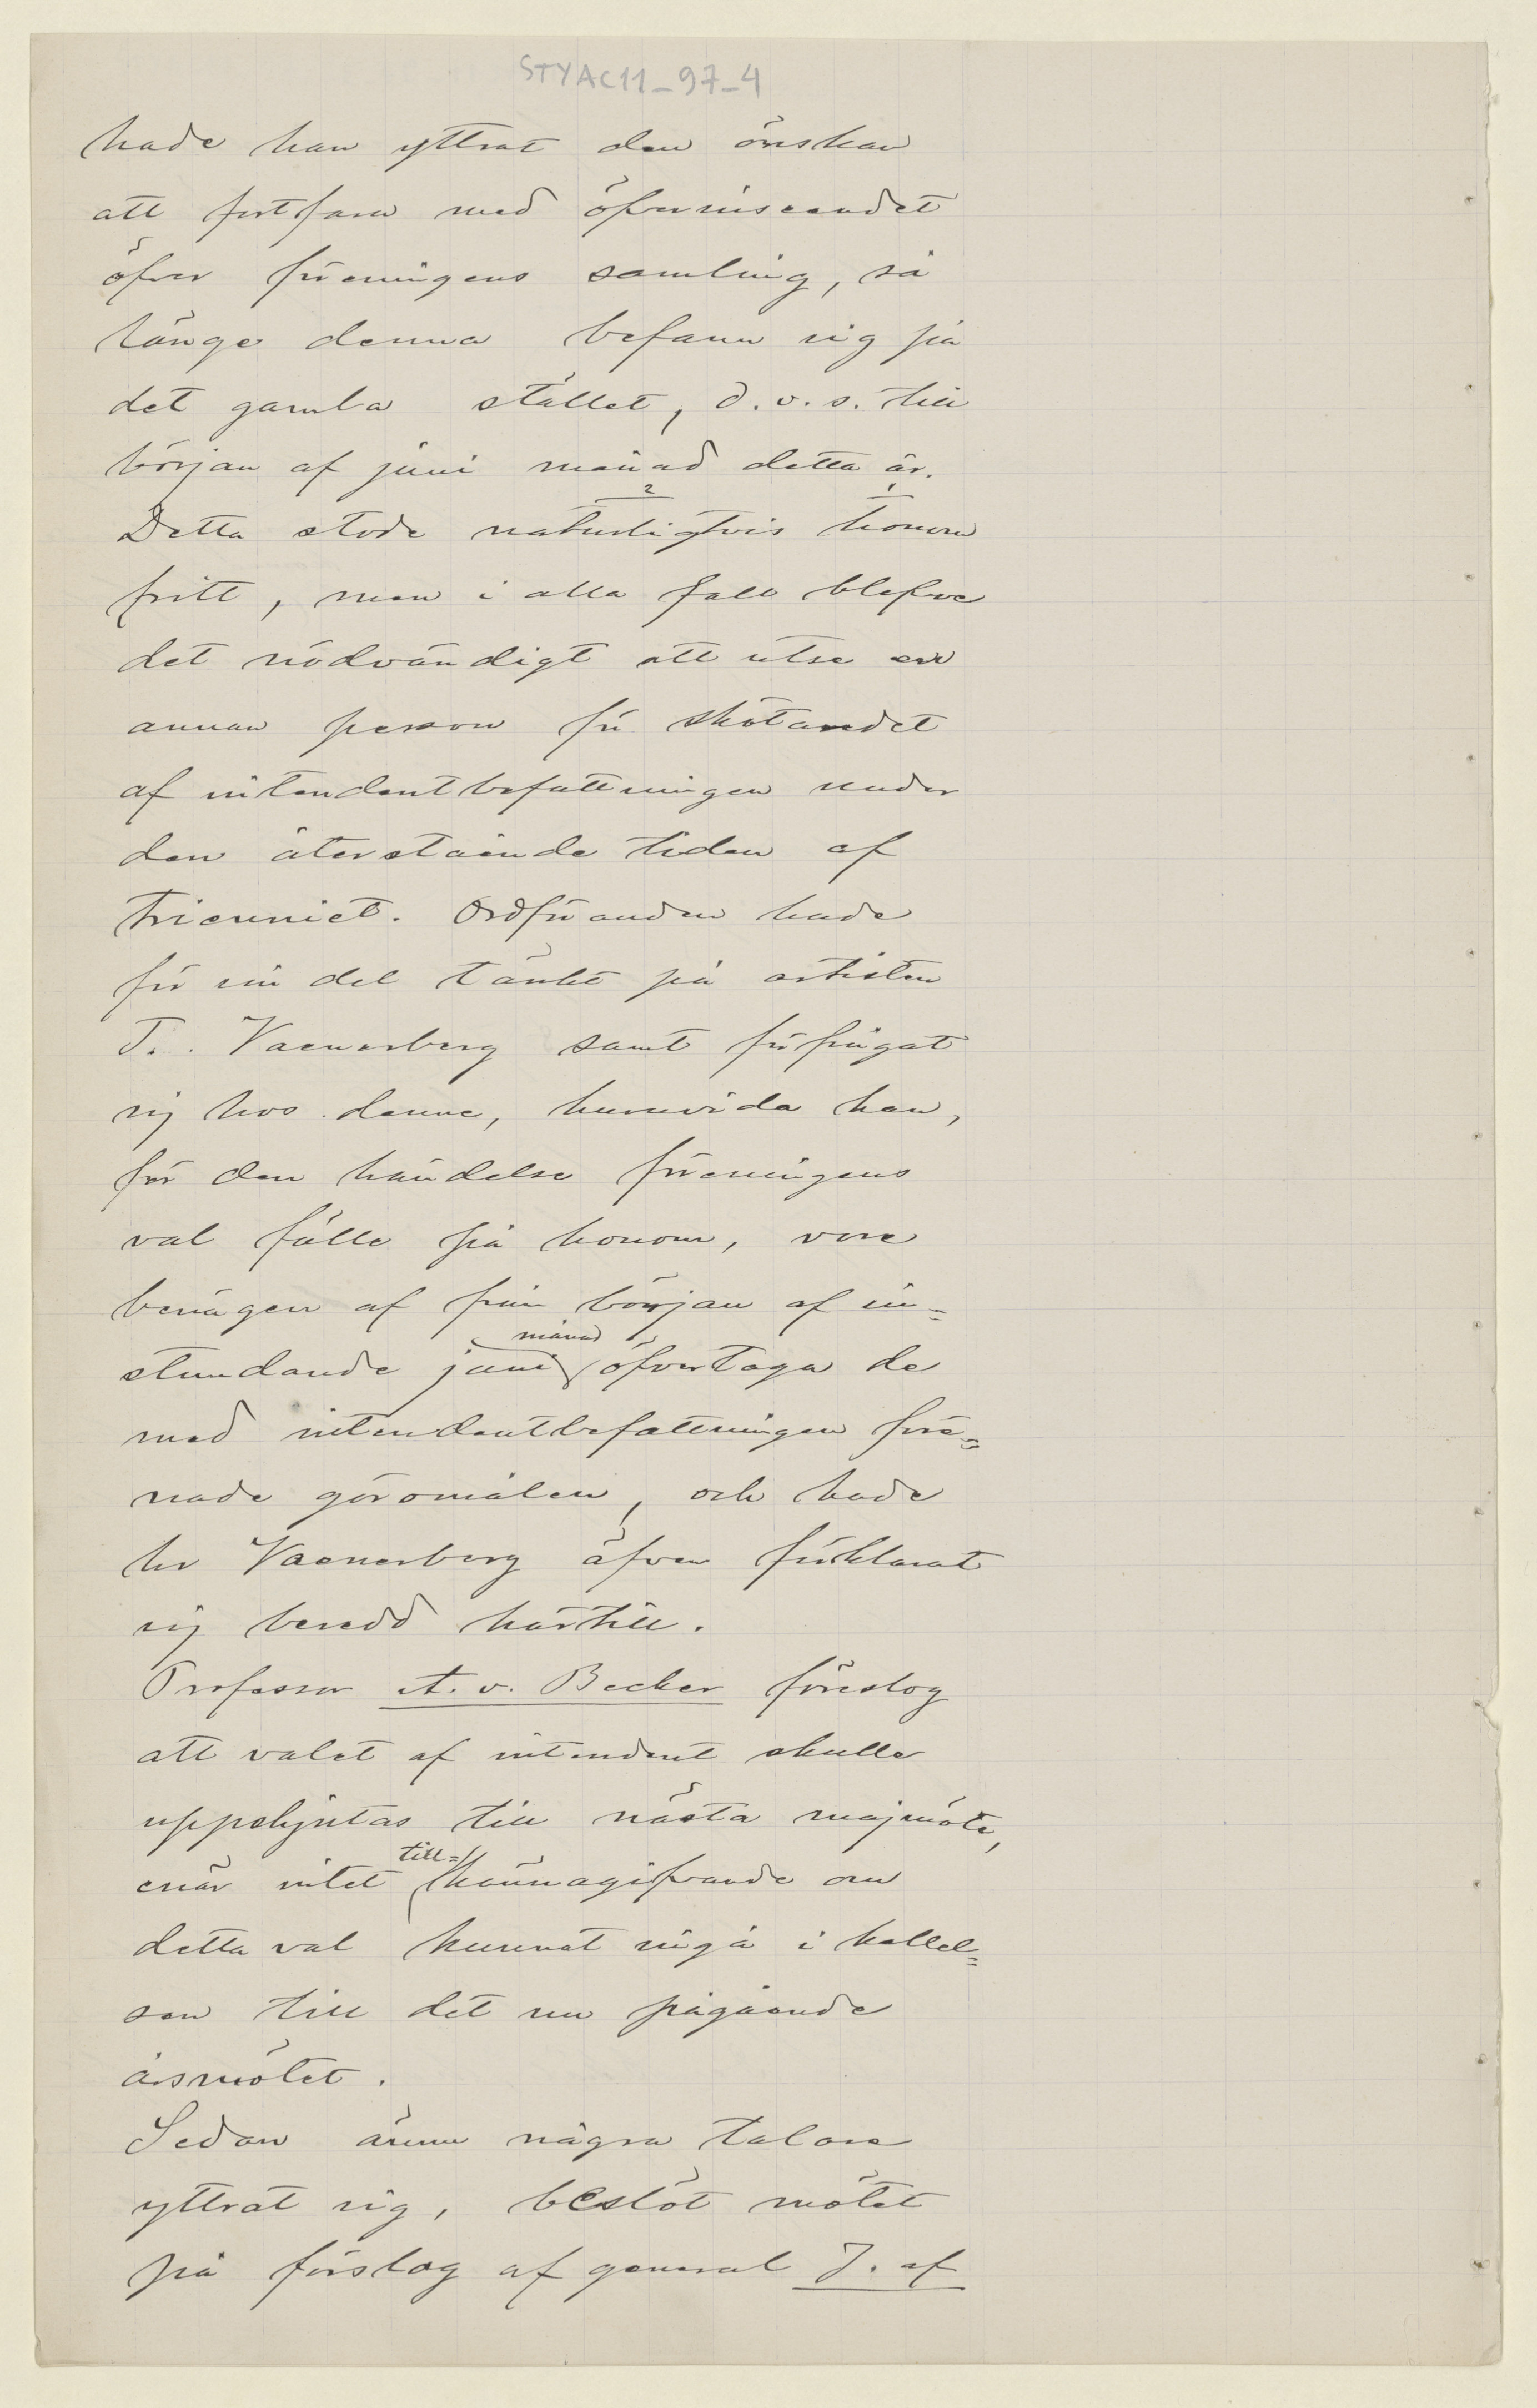 STYAC11_97_4
hade han yttrat den önskan
att fortfara med öfverinseendet
öfver föreningens samling, så
länge denna befann sig på
det gamla stället, d.v.s. till
början af juni månad detta år.
2 1
Detta stode naturligtvis honom
fritt, men i alla fall blefve
det nödvändigt att utse en
annan person för skötandet
af intendentbefattningen under
den återstående tiden af
trienniet. Ordföranden hade
för sin del tänkt på artisten
T. Vaenerberg samt förfrågat
sig hos denne, huruvida han,
för den händelse föreningens
val fölle på honom, vore
benägen af från början af in-
månad
stundande juni öfvertaga de
med intendentbefattningen före-
nade göromålen, och hade
hr Vaenerberg äfven förklarat
sig beredd härtill.
Professor A. v. Becker föreslog
att valet af intendent skulle
uppskjutas till nästa majmöte,
till-
enär intet kännagifvande om
detta val kunnat ingå i kallel-
sen till det nu pågående
årsmötet.
Sedan ännu några talare
yttrat sig, beslöt mötet
på förslag af general J. af